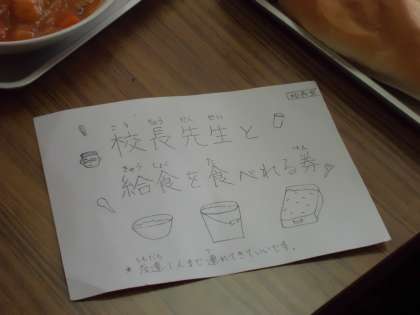 校長先生と
給食を食べれる券
*友達1人まで連れてきていいです。